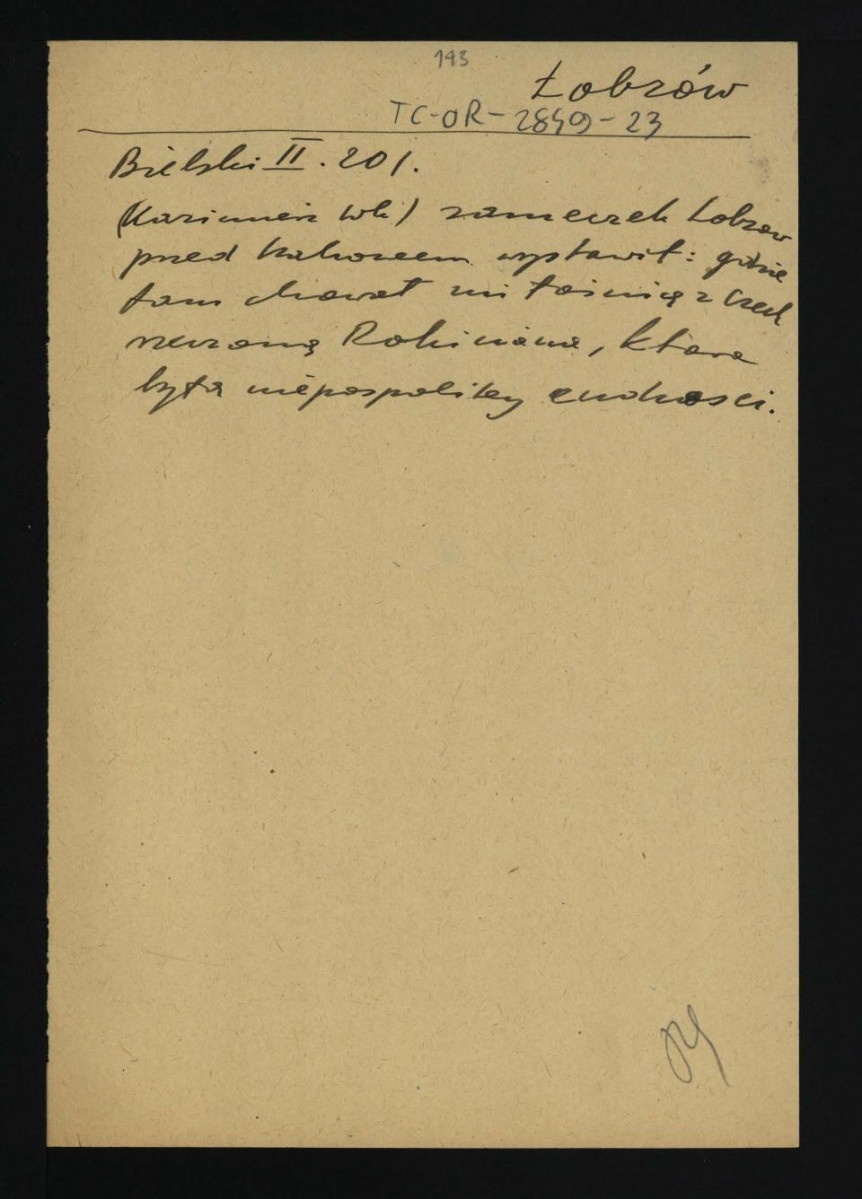 193
Łobzów
TC-OR-2849-23
Bielski II. 201.
(Kazimierz Wlk) zameczek Łobzow
przed Krakowem wystawił: gdzie
tam chował miłośnicę z Czech
rzeczoną Rokiczana, która
była niepospolitey cudności.